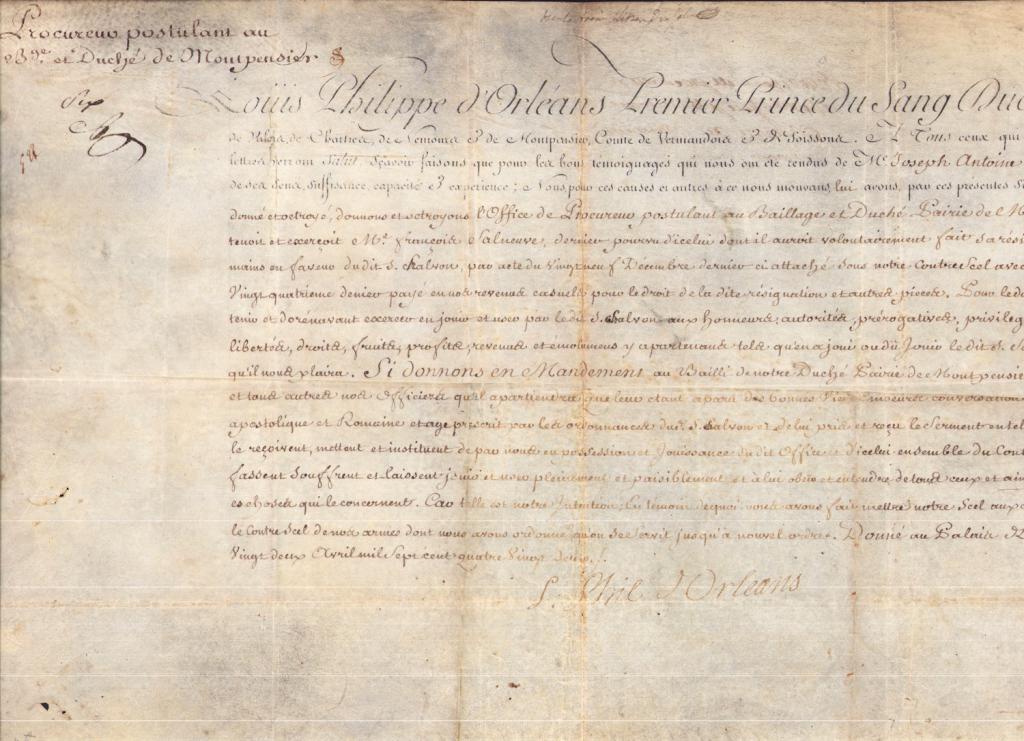 Procureur postulant au
B.ge et Duché de Montpensier
Loüis Philippe d'Orléans Premier Prince du Sang Duc
de Valois, de Chartres, de Nemours & de Montpensier, Comte de Vermandois & de Soissons. A Tous ceux qui
lettres verront Salut. Sçavoir faisons que pour les bons témoignages qui nous ont été rendus de Me. Joseph Antoine
de ses sens, suffisance, capacité & expérience; Nous pour ces causes et autres à ce nous mouvans, lui avons, par ces présentes
donné et octroyé, donnons et octroyons l'Office de Procureur postulant au Baillage et Duché Pairie de
tenoit et exerçoit Me. François Salneuve, dernier pourvu d'icelui dont il auroit volontairement fait sa
mains en faveur du dit S. Salvon, par acte du vingt neuf Décembre dernier ci attaché sous notre Contre Scel avec
Vingt quatrieme denier payé en nos revenus casuels pour le droit de la dite résignation et autres pieces. Pour le dit
tenir et dorénavant exercer en jouir et user par le dit S. Salvon aux honneurs, autorités, prérogatives,
libertés, droits, fruits, profits, revenus et émolumens y apartenans tels qu'en a joui ou dû Jouir le dit S.
qu'il nous plaira. Si donnons en Mandement au Bailli de notre Duché Pairie de Montpensier
et tous autres nos Officiers qu'il apartiendra que leur étant aparu des bonnes Vie & moeurs conversation
apostolique et Romaine et age prescrit par les ordonnances du d. S. Salvon et de lui pris et reçu le Serment en tel
le reçoivent, mettent et instituent de par nous en possession et Jouissance du dit Office et d'icelui ensemble du
fassent souffrent et laissent jouir et user pleinement et paisiblement et à lui obéir et entendre de tous ceux et
es choses qui le concernent. Car telle est notre Intention. En témoin de quoi nous avons fait mettre notre Scel
le Contre Scel de nos armes dont nous avons ordonné qu'on se servit jusqu'à nouvel ordre. Donné au Palais
Vingt deux Avril mil Sept cent quatre Vingt
L. Phil d'Orléans